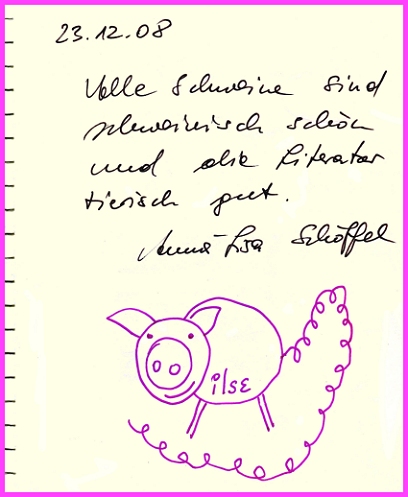 23.12.08
Volle Schweine sind
schweinisch schön
und die Literatur
tierisch gut.
Anna-Lisa Schöffel
ilsE